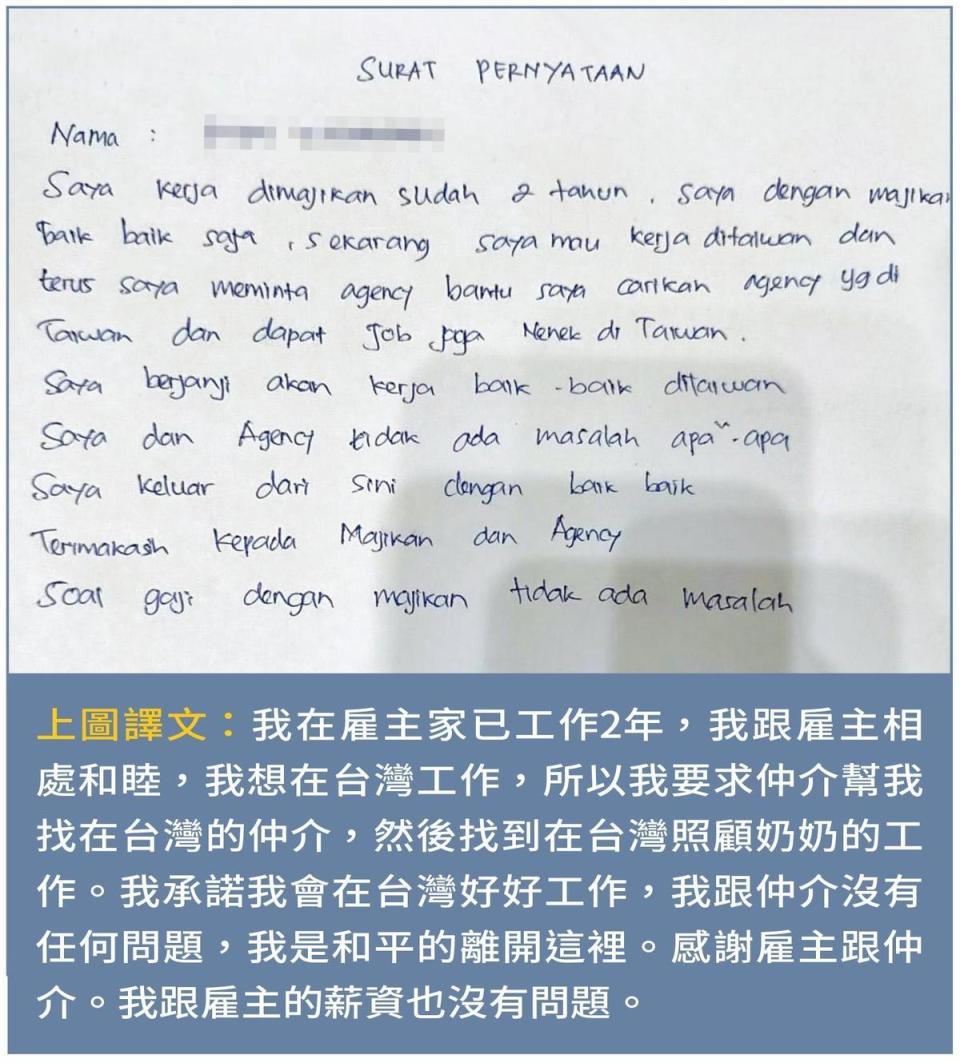 SURAT PERNYATAAN
Nama :
Saya kerja dimajikan sudah 2 tahun. Saya dengan majikan
baik baik saja, sekarang saya mau kerja ditaiwan dan
terus saya meminta agency bantu saya carikan agency yg di
Taiwan dan dapat Job Jaga Nenek di Taiwan.
Saya berjanji akan kerja baik-baik ditaiwan
Saya dan Agency tidak ada masalah apa-apa
Saya keluar dari sini dengan baik baik
Terimakash kepada Majikan dan Agency
Soal gaji dengan majikan tidak ada masalah
上圖譯文：我在雇主家已工作2年，我跟雇主相
處和睦，我想在台灣工作，所以我要求仲介幫我
找在台灣的仲介，然後找到在台灣照顧奶奶的工
作。我承諾我會在台灣好好工作，我跟仲介沒有
任何問題，我是和平的離開這裡。感謝雇主跟仲
介。我跟雇主的薪資也沒有問題。